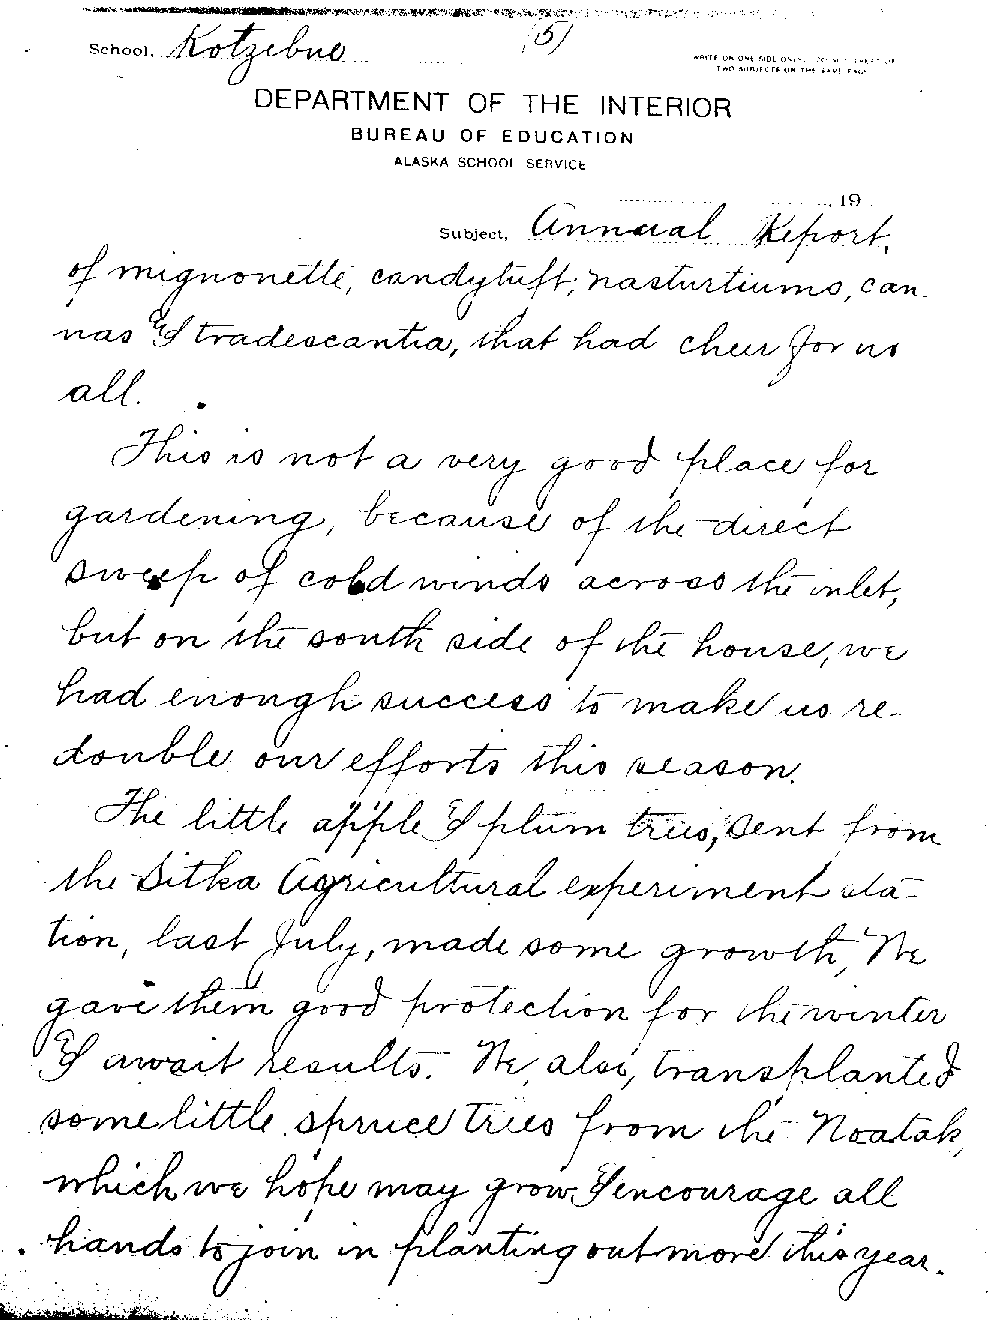 (5)
School, Kotzebue
WRITE ON ONE SIDE ONLY. DO NOT TREAT OF
TWO SUBJECTS ON THE SAME PAGE
DEPARTMENT OF THE INTERIOR
BUREAU OF EDUCATION
ALASKA SCHOOL SERVICE
, 19
Subject, Annual Report.
of mignonette, candytuft, nasturtiums, can-
nas & tradescantia, that had cheer for us
all.
This is not a very good place for
gardening, because of the direct
sweep of cold winds across the inlet,
but on the south side of the house, we
had enough success to make us re-
double our efforts this season.
The little apple & plum trees, sent from
the Sitka Agricultural experiment sta-
tion, last July, made some growth, We
gave them good protection for the winter
& await results. We, also, transplanted
some little spruce trees from the Noatak,
which we hope may grow & encourage all
hands to join in planting out more this year.